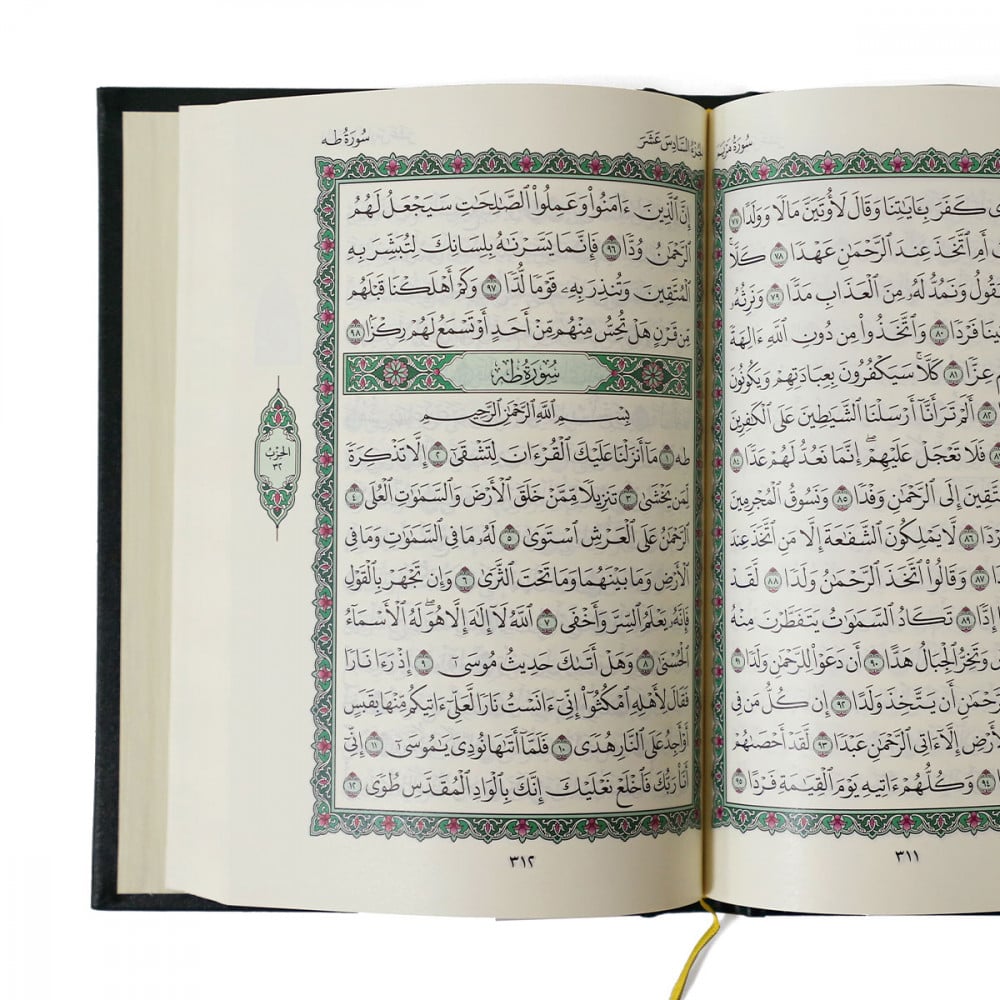 سُورَةُ مَرْيَمَ
كَفَرَ بِـَٔايَٰتِنَا وَقَالَ لَأُوتَيَنَّ مَالًا وَوَلَدًا ٧٧
أَمِ ٱتَّخَذَ عِندَ ٱلرَّحْمَٰنِ عَهْدًا ٧٨ كَلَّا
وَنَمُدُّ لَهُۥ مِنَ ٱلْعَذَابِ مَدًّا ٧٩ وَنَرِثُهُۥ
فَرْدًا ٨٠ وَٱتَّخَذُوا۟ مِن دُونِ ٱللَّهِ ءَالِهَةً
عِزًّا ٨١ كَلَّا سَيَكْفُرُونَ بِعِبَادَتِهِمْ وَيَكُونُونَ
٨٢ أَلَمْ تَرَ أَنَّآ أَرْسَلْنَا ٱلشَّيَٰطِينَ عَلَى ٱلْكَٰفِرِينَ
فَلَا تَعْجَلْ عَلَيْهِمْ إِنَّمَا نَعُدُّ لَهُمْ عَدًّا ٨٤
إِلَى ٱلرَّحْمَٰنِ وَفْدًا ٨٥ وَنَسُوقُ ٱلْمُجْرِمِينَ
٨٦ لَّا يَمْلِكُونَ ٱلشَّفَٰعَةَ إِلَّا مَنِ ٱتَّخَذَ عِندَ
٨٧ وَقَالُوا۟ ٱتَّخَذَ ٱلرَّحْمَٰنُ وَلَدًا ٨٨ لَّقَدْ
إِدًّا ٨٩ تَكَادُ ٱلسَّمَٰوَٰتُ يَتَفَطَّرْنَ مِنْهُ
وَتَخِرُّ ٱلْجِبَالُ هَدًّا ٩٠ أَن دَعَوْا۟ لِلرَّحْمَٰنِ وَلَدًا ٩١
أَن يَتَّخِذَ وَلَدًا ٩٢ إِن كُلُّ مَن فِى
إِلَّآ ءَاتِى ٱلرَّحْمَٰنِ عَبْدًا ٩٣ لَّقَدْ أَحْصَىٰهُمْ
٩٤ وَكُلُّهُمْ ءَاتِيهِ يَوْمَ ٱلْقِيَٰمَةِ فَرْدًا ٩٥
٣١١
ٱلْجُزْءُ ٱلسَّادِسَ عَشَرَ
سُورَةُ طه
إِنَّ ٱلَّذِينَ ءَامَنُوا۟ وَعَمِلُوا۟ ٱلصَّٰلِحَٰتِ سَيَجْعَلُ لَهُمُ
ٱلرَّحْمَٰنُ وُدًّا ٩٦ فَإِنَّمَا يَسَّرْنَٰهُ بِلِسَانِكَ لِتُبَشِّرَ بِهِ
ٱلْمُتَّقِينَ وَتُنذِرَ بِهِۦ قَوْمًا لُّدًّا ٩٧ وَكَمْ أَهْلَكْنَا قَبْلَهُم
مِّن قَرْنٍ هَلْ تُحِسُّ مِنْهُم مِّنْ أَحَدٍ أَوْ تَسْمَعُ لَهُمْ رِكْزًۢا ٩٨
سُورَةُ طه
بِسْمِ ٱللَّهِ ٱلرَّحْمَٰنِ ٱلرَّحِيمِ
طه ١ مَآ أَنزَلْنَا عَلَيْكَ ٱلْقُرْءَانَ لِتَشْقَىٰٓ ٢ إِلَّا تَذْكِرَةً
لِّمَن يَخْشَىٰ ٣ تَنزِيلًا مِّمَّنْ خَلَقَ ٱلْأَرْضَ وَٱلسَّمَٰوَٰتِ ٱلْعُلَى ٤
ٱلرَّحْمَٰنُ عَلَى ٱلْعَرْشِ ٱسْتَوَىٰ ٥ لَهُۥ مَا فِى ٱلسَّمَٰوَٰتِ وَمَا فِى
ٱلْأَرْضِ وَمَا بَيْنَهُمَا وَمَا تَحْتَ ٱلثَّرَىٰ ٦ وَإِن تَجْهَرْ بِٱلْقَوْلِ
فَإِنَّهُۥ يَعْلَمُ ٱلسِّرَّ وَأَخْفَى ٧ ٱللَّهُ لَآ إِلَٰهَ إِلَّا هُوَ لَهُ ٱلْأَسْمَآءُ
ٱلْحُسْنَىٰ ٨ وَهَلْ أَتَىٰكَ حَدِيثُ مُوسَىٰٓ ٩ إِذْ رَءَا نَارًا
فَقَالَ لِأَهْلِهِ ٱمْكُثُوٓا۟ إِنِّىٓ ءَانَسْتُ نَارًا لَّعَلِّىٓ ءَاتِيكُم مِّنْهَا بِقَبَسٍ
أَوْ أَجِدُ عَلَى ٱلنَّارِ هُدًى ١٠ فَلَمَّآ أَتَىٰهَا نُودِىَ يَٰمُوسَىٰٓ ١١ إِنِّىٓ
أَنَا۠ رَبُّكَ فَٱخْلَعْ نَعْلَيْكَ إِنَّكَ بِٱلْوَادِ ٱلْمُقَدَّسِ طُوًى ١٢
ٱلْحِزْبُ
٣٢
٣١٢